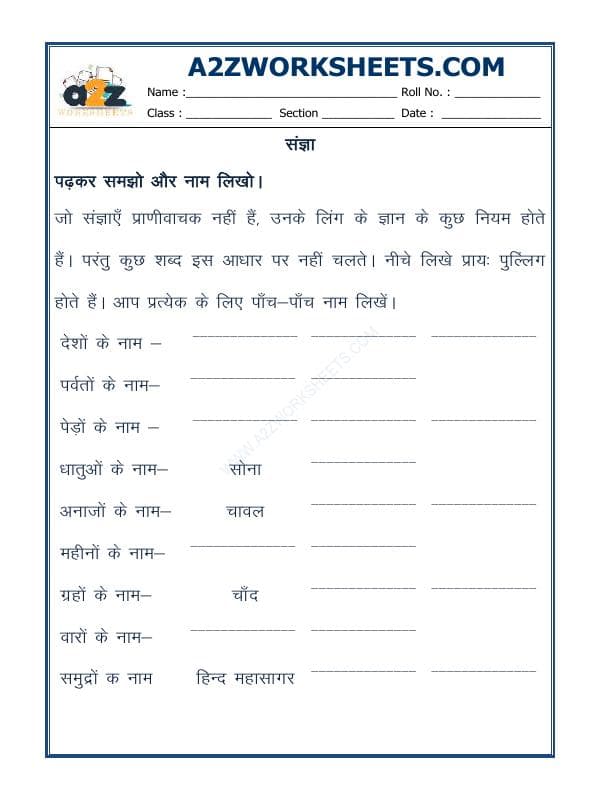 A2ZWORKSHEETS.COM
a2z
WORKSHEETS
Name :________________________________ Roll No. : _____________
Class : _____________ Section ___________ Date : _______________
संज्ञा
पढ़कर समझो और नाम लिखो।
जो संज्ञाएँ प्राणीवाचक नहीं हैं, उनके लिंग के ज्ञान के कुछ नियम होते
हैं। परंतु कुछ शब्द इस आधार पर नहीं चलते। नीचे लिखे प्रायः पुल्लिंग
होते हैं। आप प्रत्येक के लिए पाँच–पाँच नाम लिखें।
देशों के नाम – ______________ ______________ ______________
पर्वतों के नाम– ______________ ______________
पेड़ों के नाम – ______________ ______________ ______________
धातुओं के नाम– सोना ______________
अनाजों के नाम– चावल ______________ ______________
महीनों के नाम– ______________ ______________
ग्रहों के नाम– चाँद ______________ ______________
वारों के नाम– ______________ ______________
समुद्रों क नाम हिन्द महासागर ______________ ______________
WWW.A2ZWORKSHEETS.COM